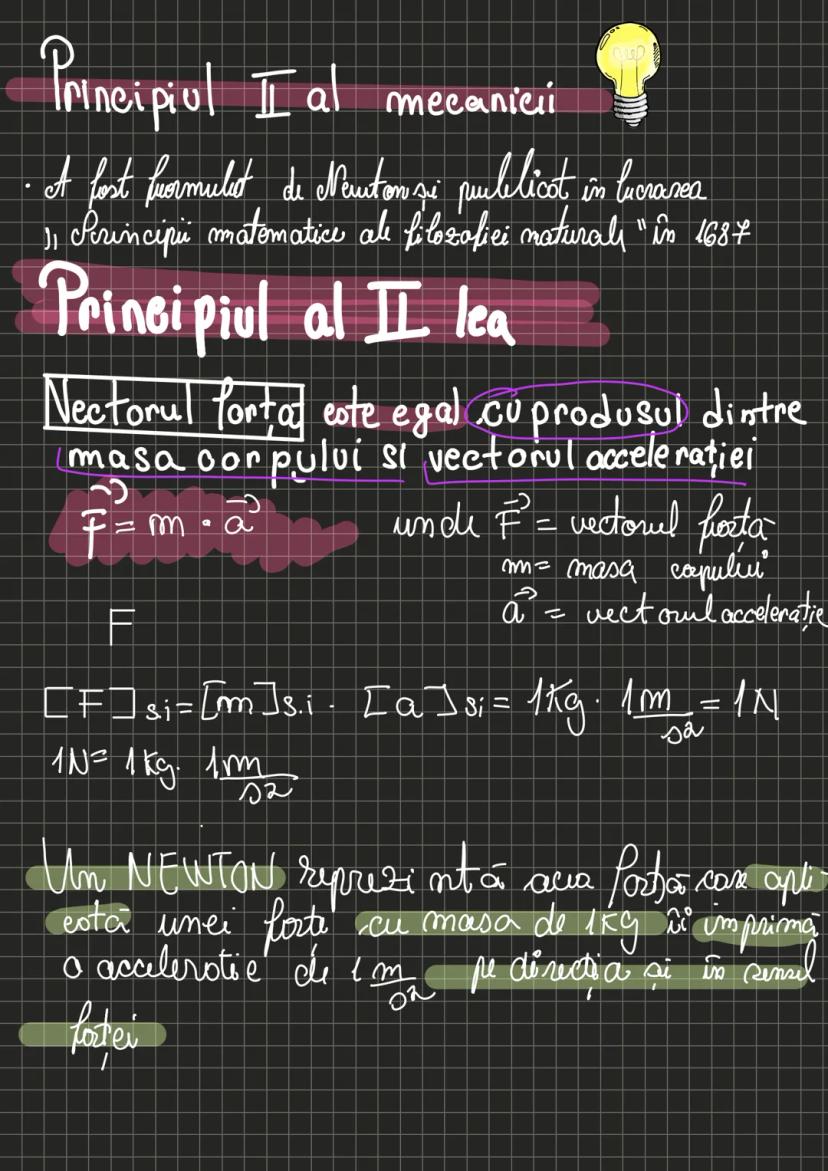 Principiul II al mecanicii
• A fost formulat de Newton și publicat în lucrarea
„ Principii matematice ale filozofiei naturale " în 1687
Principiul al II lea
Vectorul forța este egal cu produsul dintre
masa corpului si vectorul accelerației
F⃗ = m · a⃗ unde F⃗ = vectorul forța
m = masa corpului
a⃗ = vectorul accelerație
F
[F] si = [m] s.i · [a] si = 1Kg · 1m/s2 = 1N
1N = 1kg · 1m/s2
Un NEWTON reprezintă acea forță care apli
cată unei forțe cu masa de 1Kg îi imprimă
o acceleratie de 1 m/s2 pe direcția și în sensul
forței